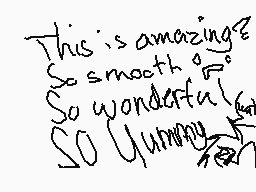 This is amazing
So smooth
So wonderful
SO Yummy